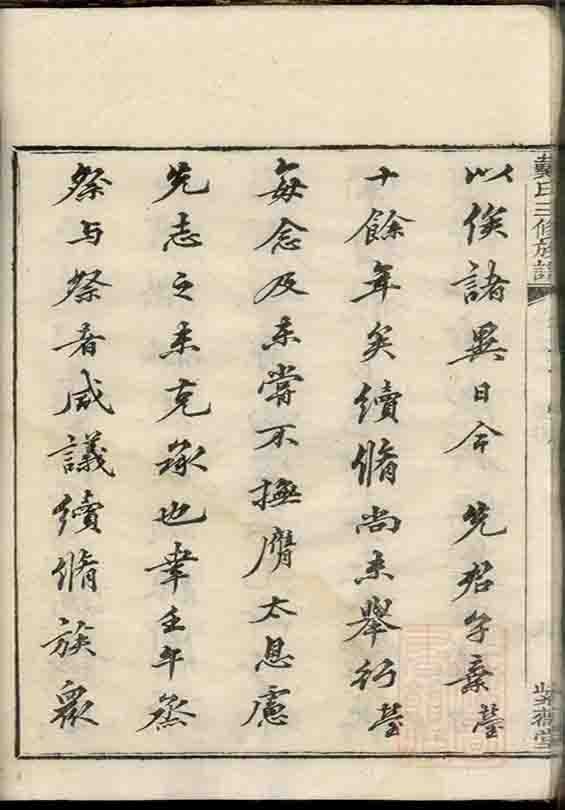 戴氏三修族譜
堂
以俟諸異日今 先君子棄瑩
十餘年矣續脩尚未舉行瑩
每念及未嘗不撫膺太息慮
先志之未克承也幸壬午烝
祭与祭者咸議續脩族衆